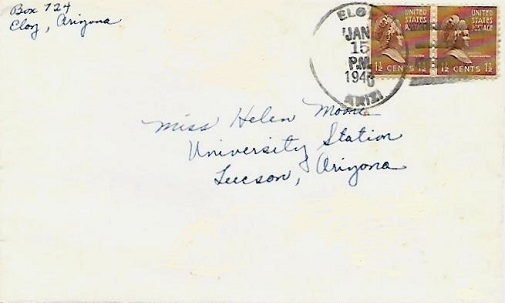 Box 724
Eloy, Arizona
ELOY
JAN
15
P.M.
1940
ARIZ.
UNITED STATES POSTAGE
1½ CENTS 1½
UNITED STATES POSTAGE
1½ CENTS 1½
Miss Helen Moore
University Station
Tucson, Arizona